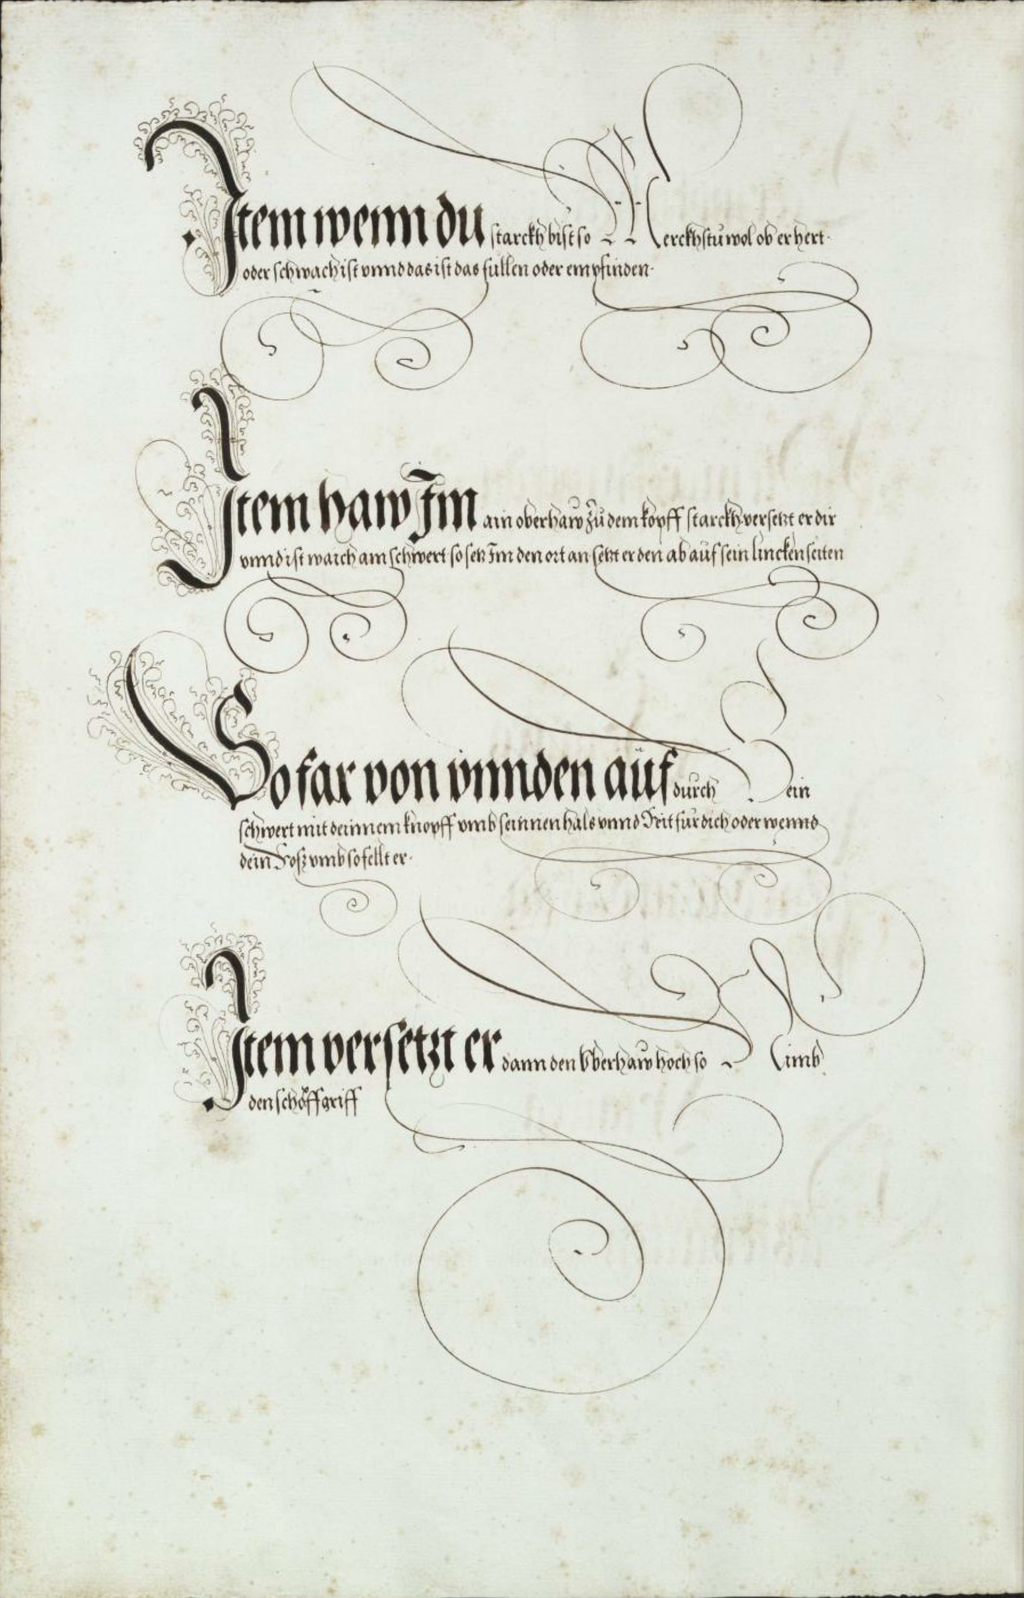 Item wenn du starckh bist so Merckhstu wol ob er hert
oder schwach ist vnnd das ist das füllen oder empfinden
Item haw Im ain oberhaw zü dem kopff starckh versetzt er dir
vnnd ist waich am schwert so setz Im den ort an setzt er den ab auf sein lincken seiten
So far von vnnden aüf durch Sein
schwert mit deinnem knopff vmb seinnen hals vnnd Trit für dich oder wennd
dein Fosz vmb so fellt er
Item versetzt er dann den Vberhaw hoch so Nimb
den schöffgriff